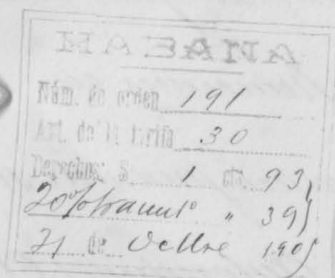 Núm. de orden 191
Art. de la tarifa 30
Derechos $ 1 cts. 93
20% " 39
31 de Octbre 1905